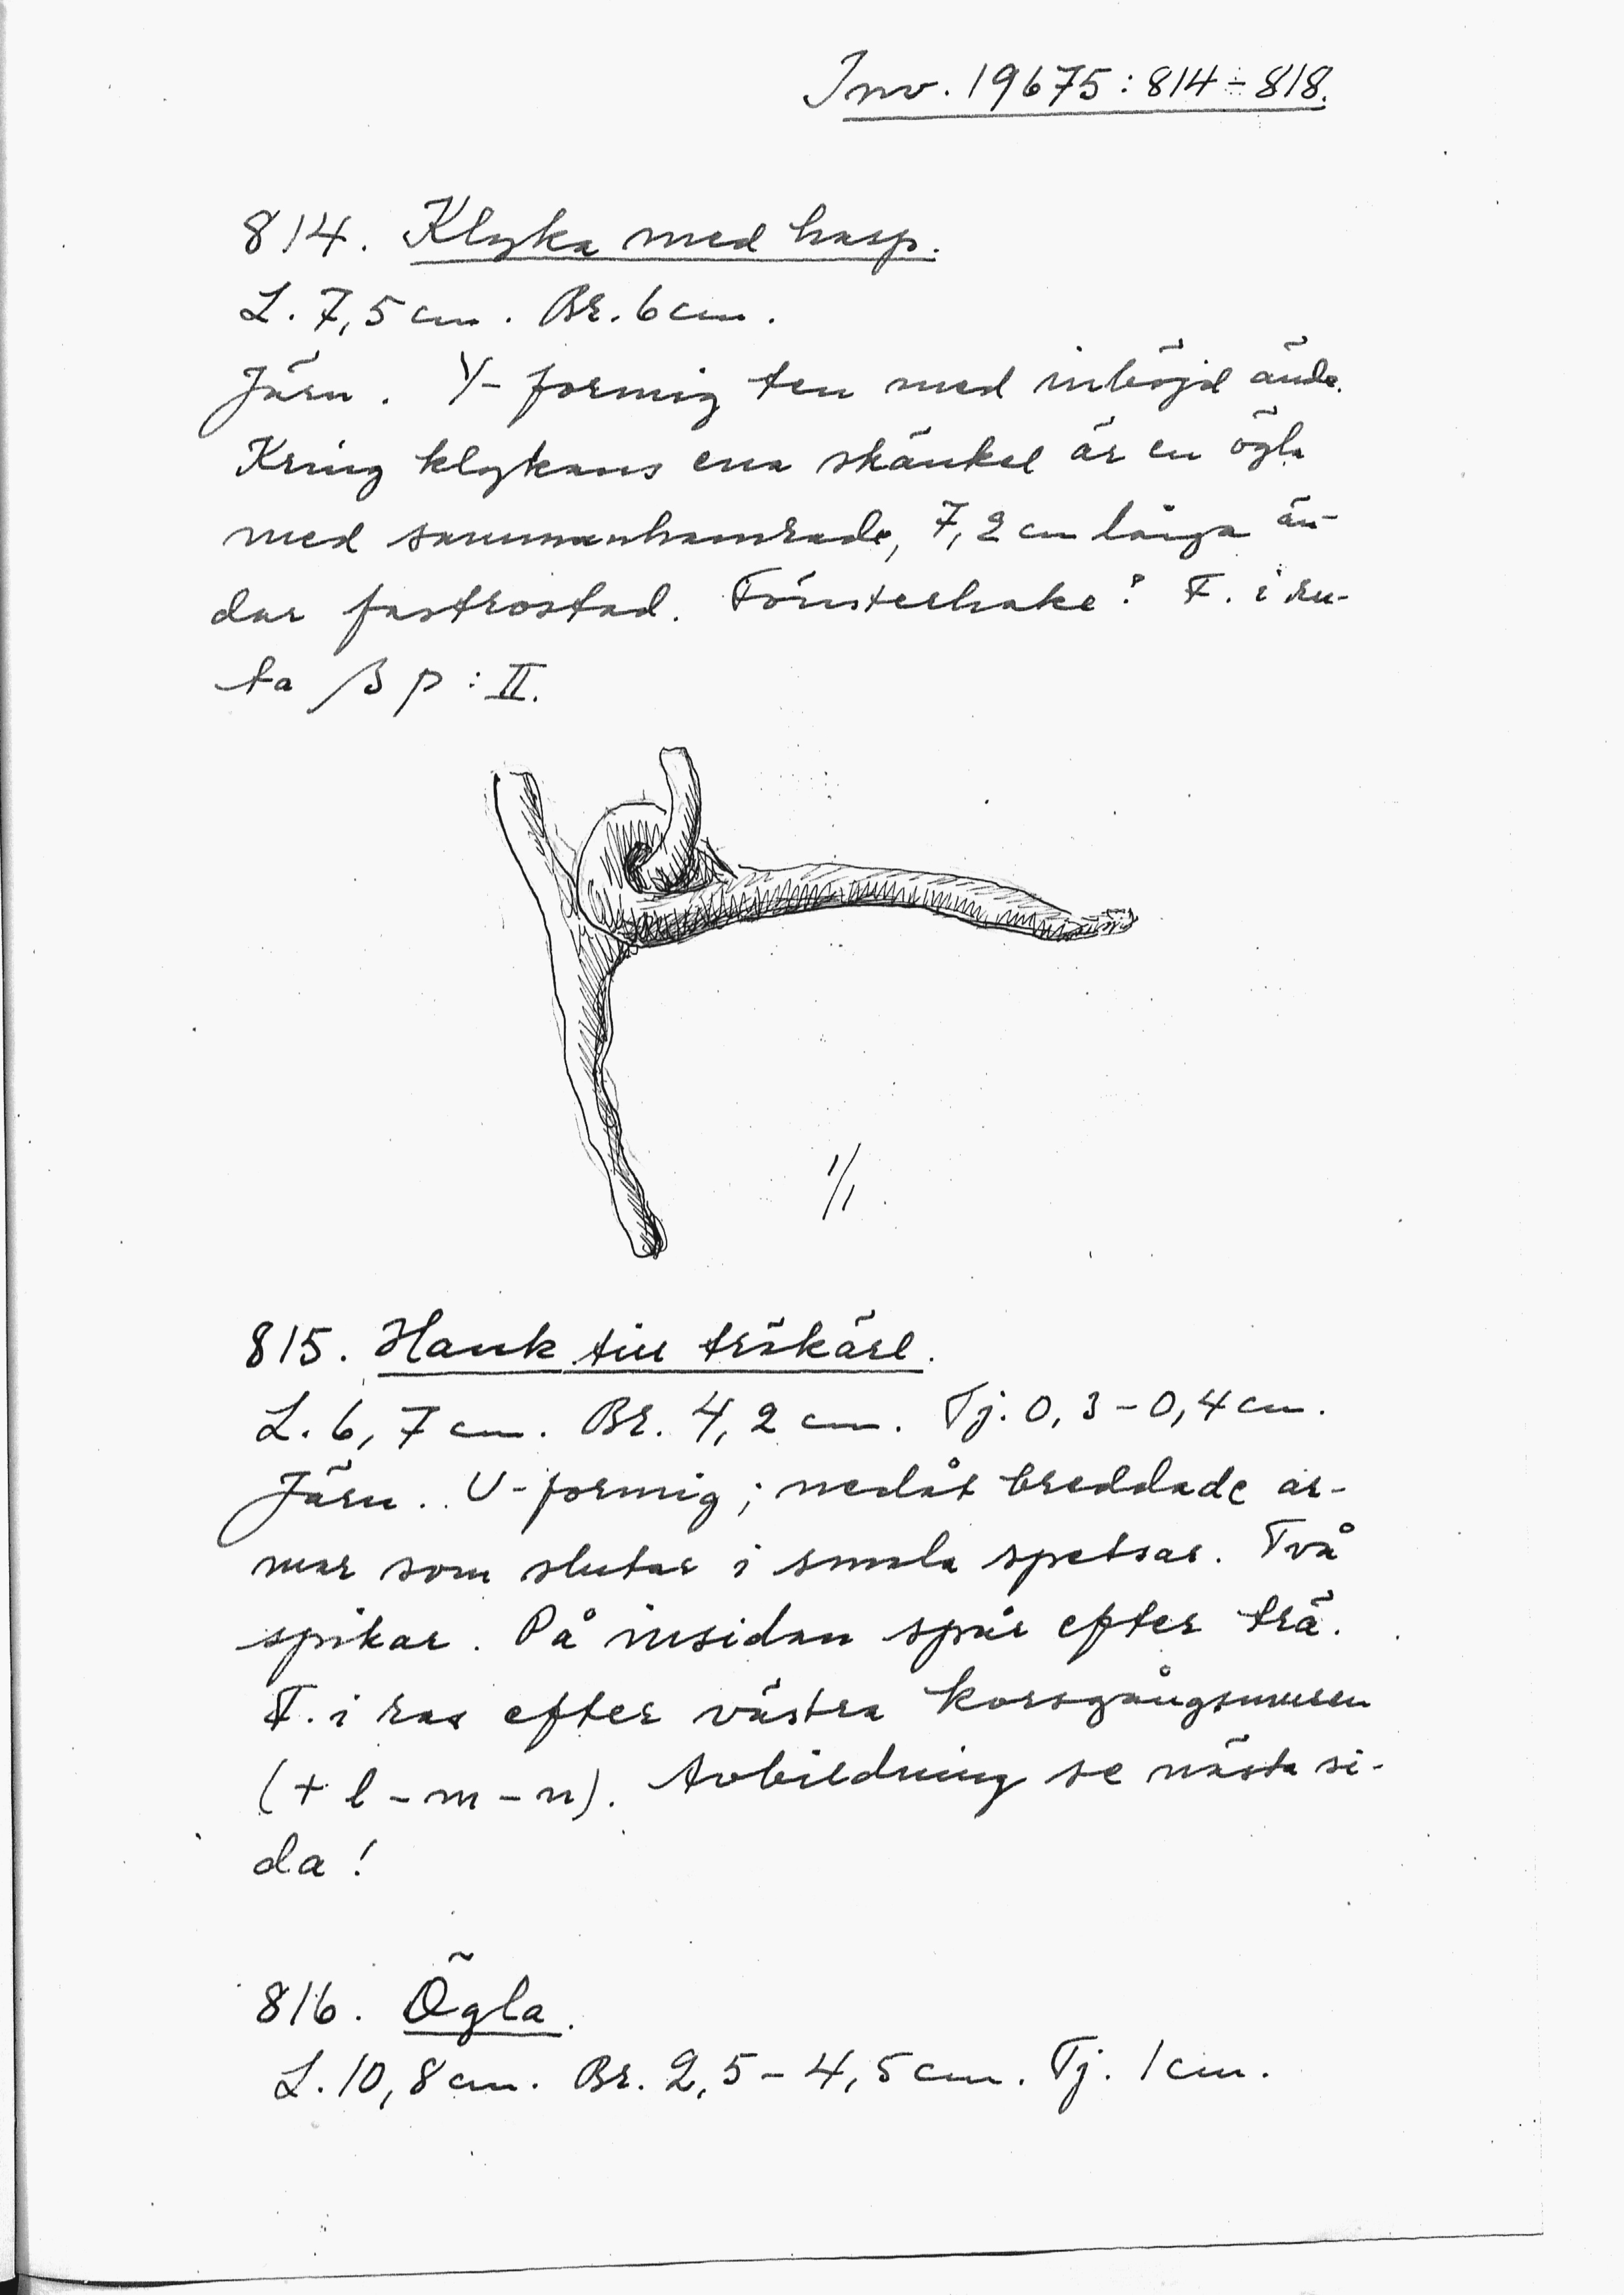 Inv. 19675:814-818.
814. Klyka med hasp.
L. 7,5 cm. Br. 6 cm.
Järn. Y-formig ten med inböjd ände.
Kring klykans ena skänkel är en ögla
med sammanhamrade, 7,2 cm långa än-
dar fastrostad. Fönsterhake? F. i ru-
ta β p : II.
1/1
815. Hank till träkärl.
L. 6,7 cm. Br. 4,2 cm. Tj. 0,3-0,4 cm.
Järn. U-formig; nedåt breddade ar-
mar som slutar i smala spetsar. Två
spikar. På insidan spår efter trä.
F. i ras efter västra korsgångsmuren
(+ l - m - n). Avbildning se nästa si-
da!
816. Ögla.
L. 10,8 cm. Br. 2,5-4,5 cm. Tj. 1 cm.